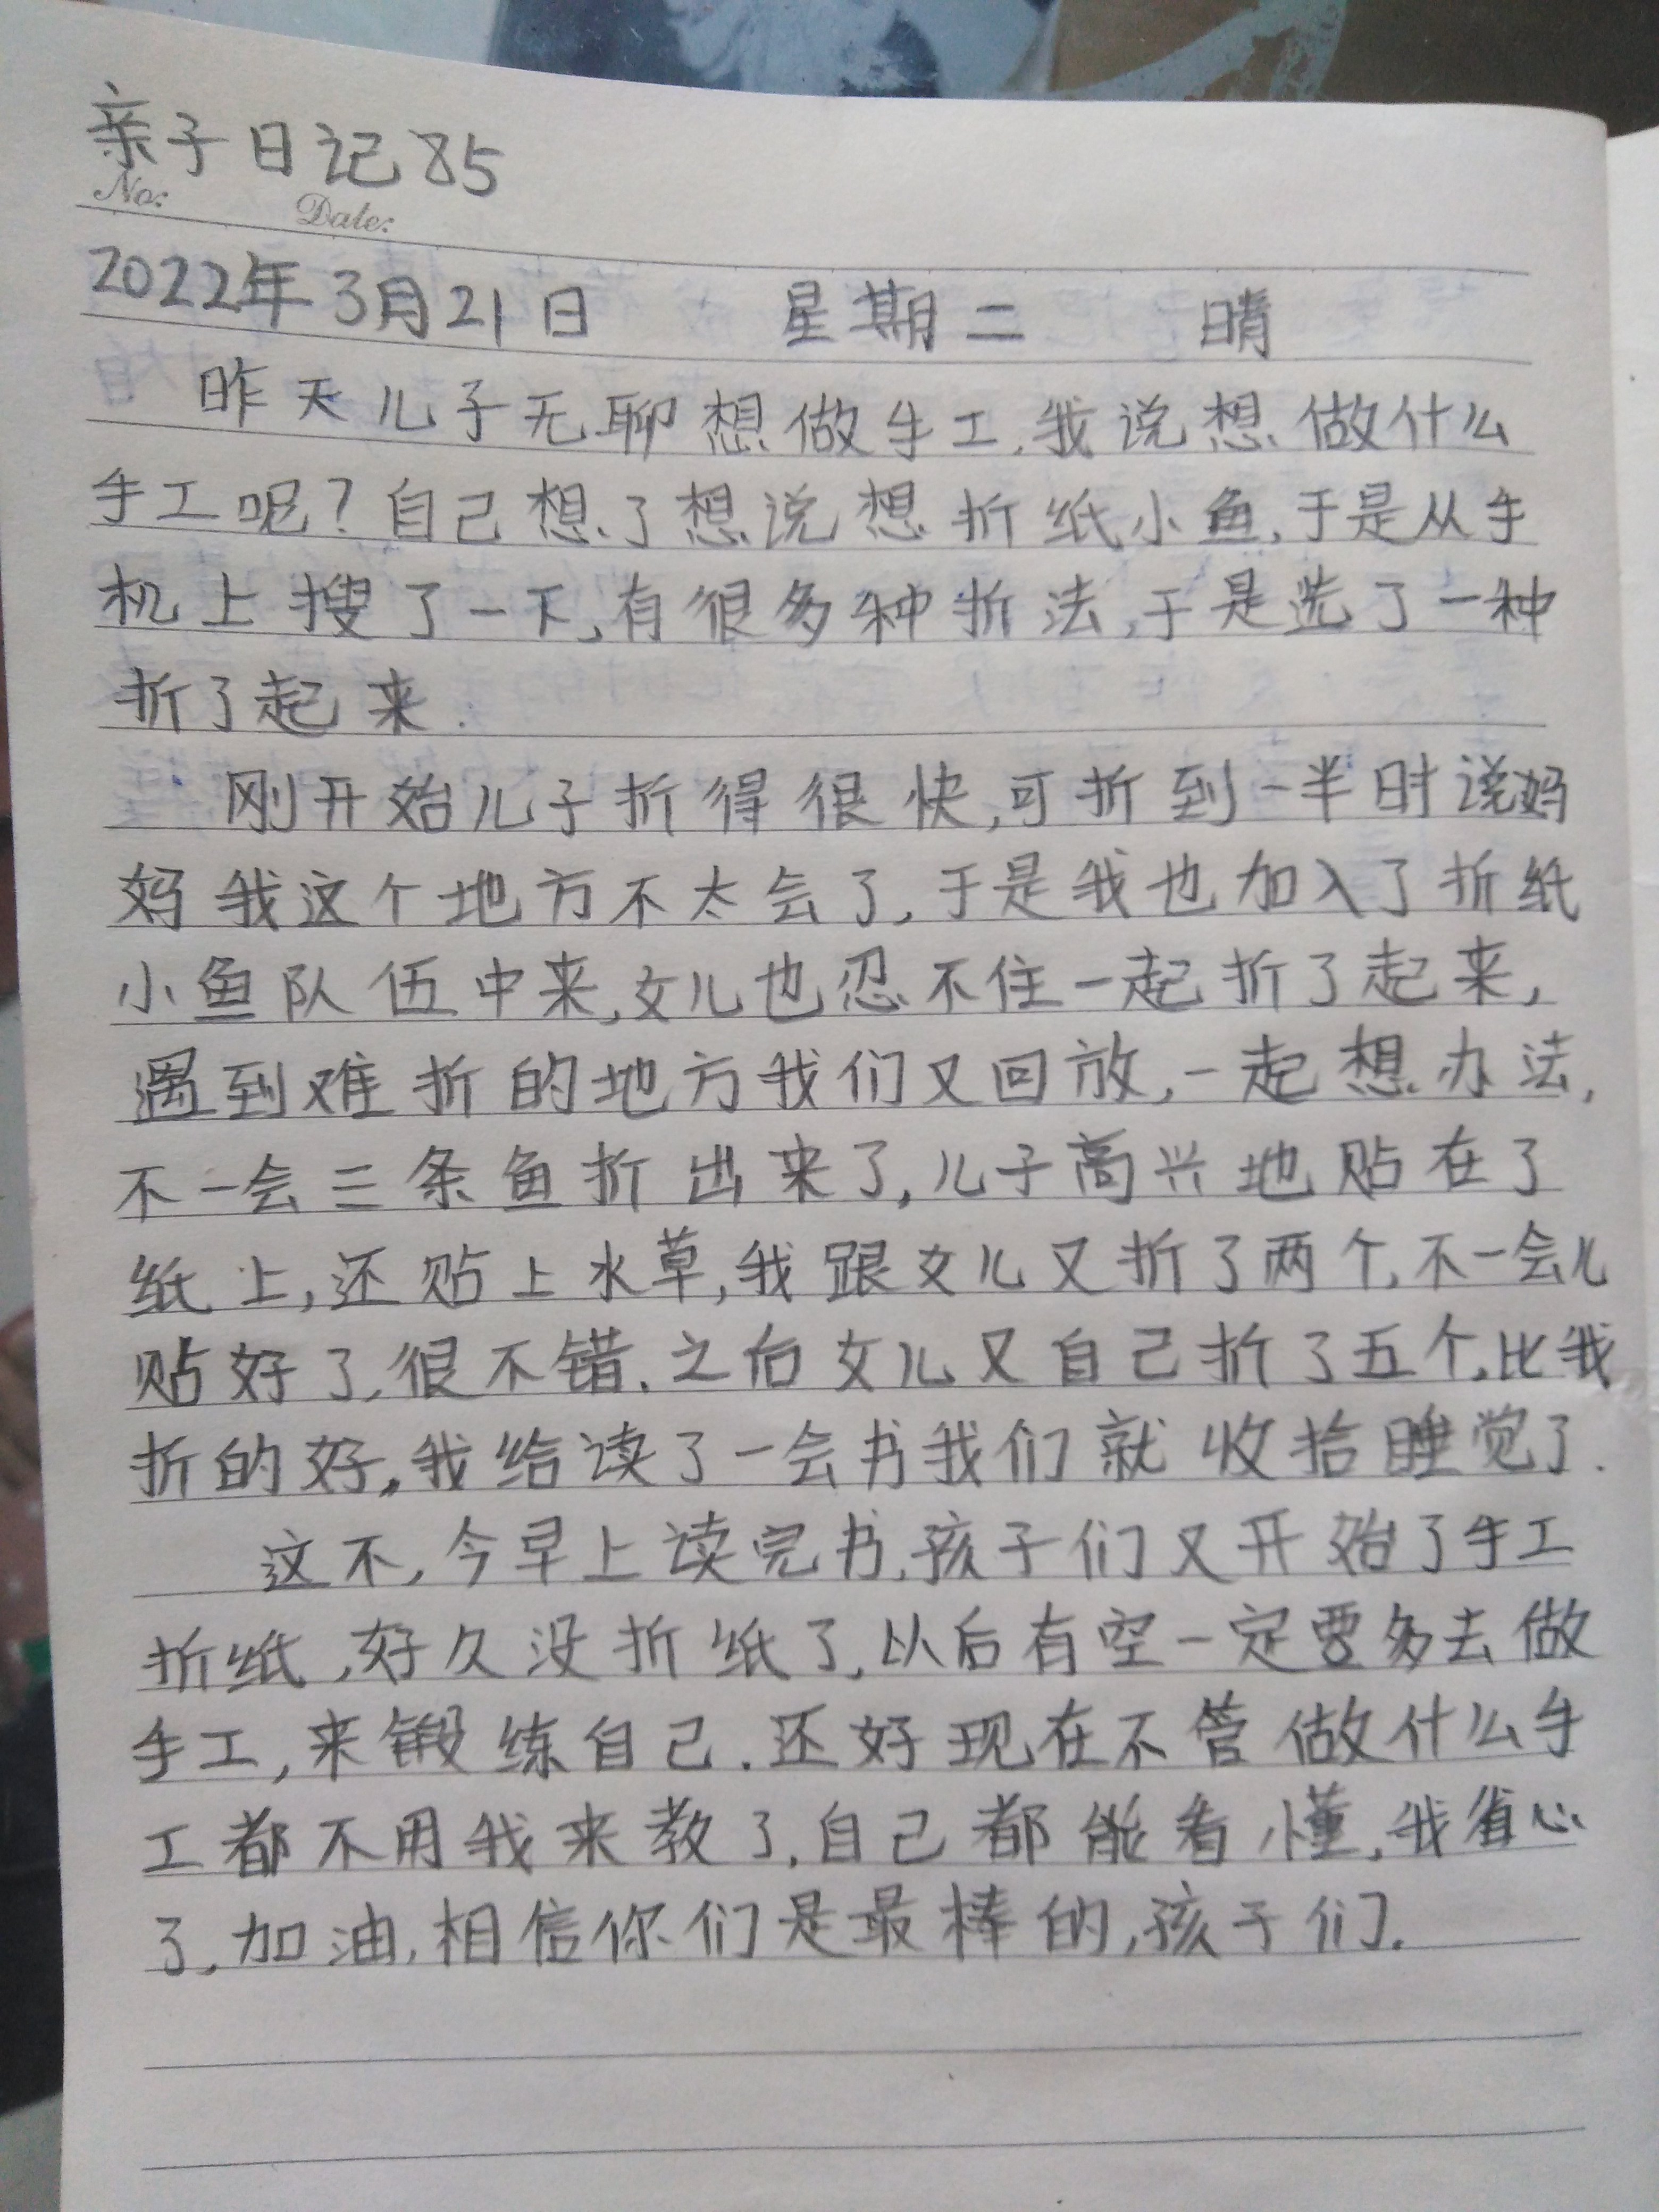 亲子日记85
No:
Date:
2022年3月21日 星期二 晴
昨天儿子无聊想做手工,我说想做什么
手工呢?自己想了想说想折纸小鱼,于是从手
机上搜了一下,有很多种折法,于是选了一种
折了起来.
刚开始儿子折得很快,可折到一半时说妈
妈我这个地方不太会了,于是我也加入了折纸
小鱼队伍中来,女儿也忍不住一起折了起来,
遇到难折的地方我们又回放,一起想办法,
不一会三条鱼折出来了,儿子高兴地贴在了
纸上,还贴上水草,我跟女儿又折了两个,不一会儿
贴好了,很不错.之后女儿又自己折了五个,比我
折的好,我给读了一会书我们就收拾睡觉了.
这不,今早上读完书,孩子们又开始了手工
折纸,好久没折纸了,以后有空一定要多去做
手工,来锻练自己.还好现在不管做什么手
工都不用我来教了,自己都能看懂,我省心
了,加油,相信你们是最棒的,孩子们.